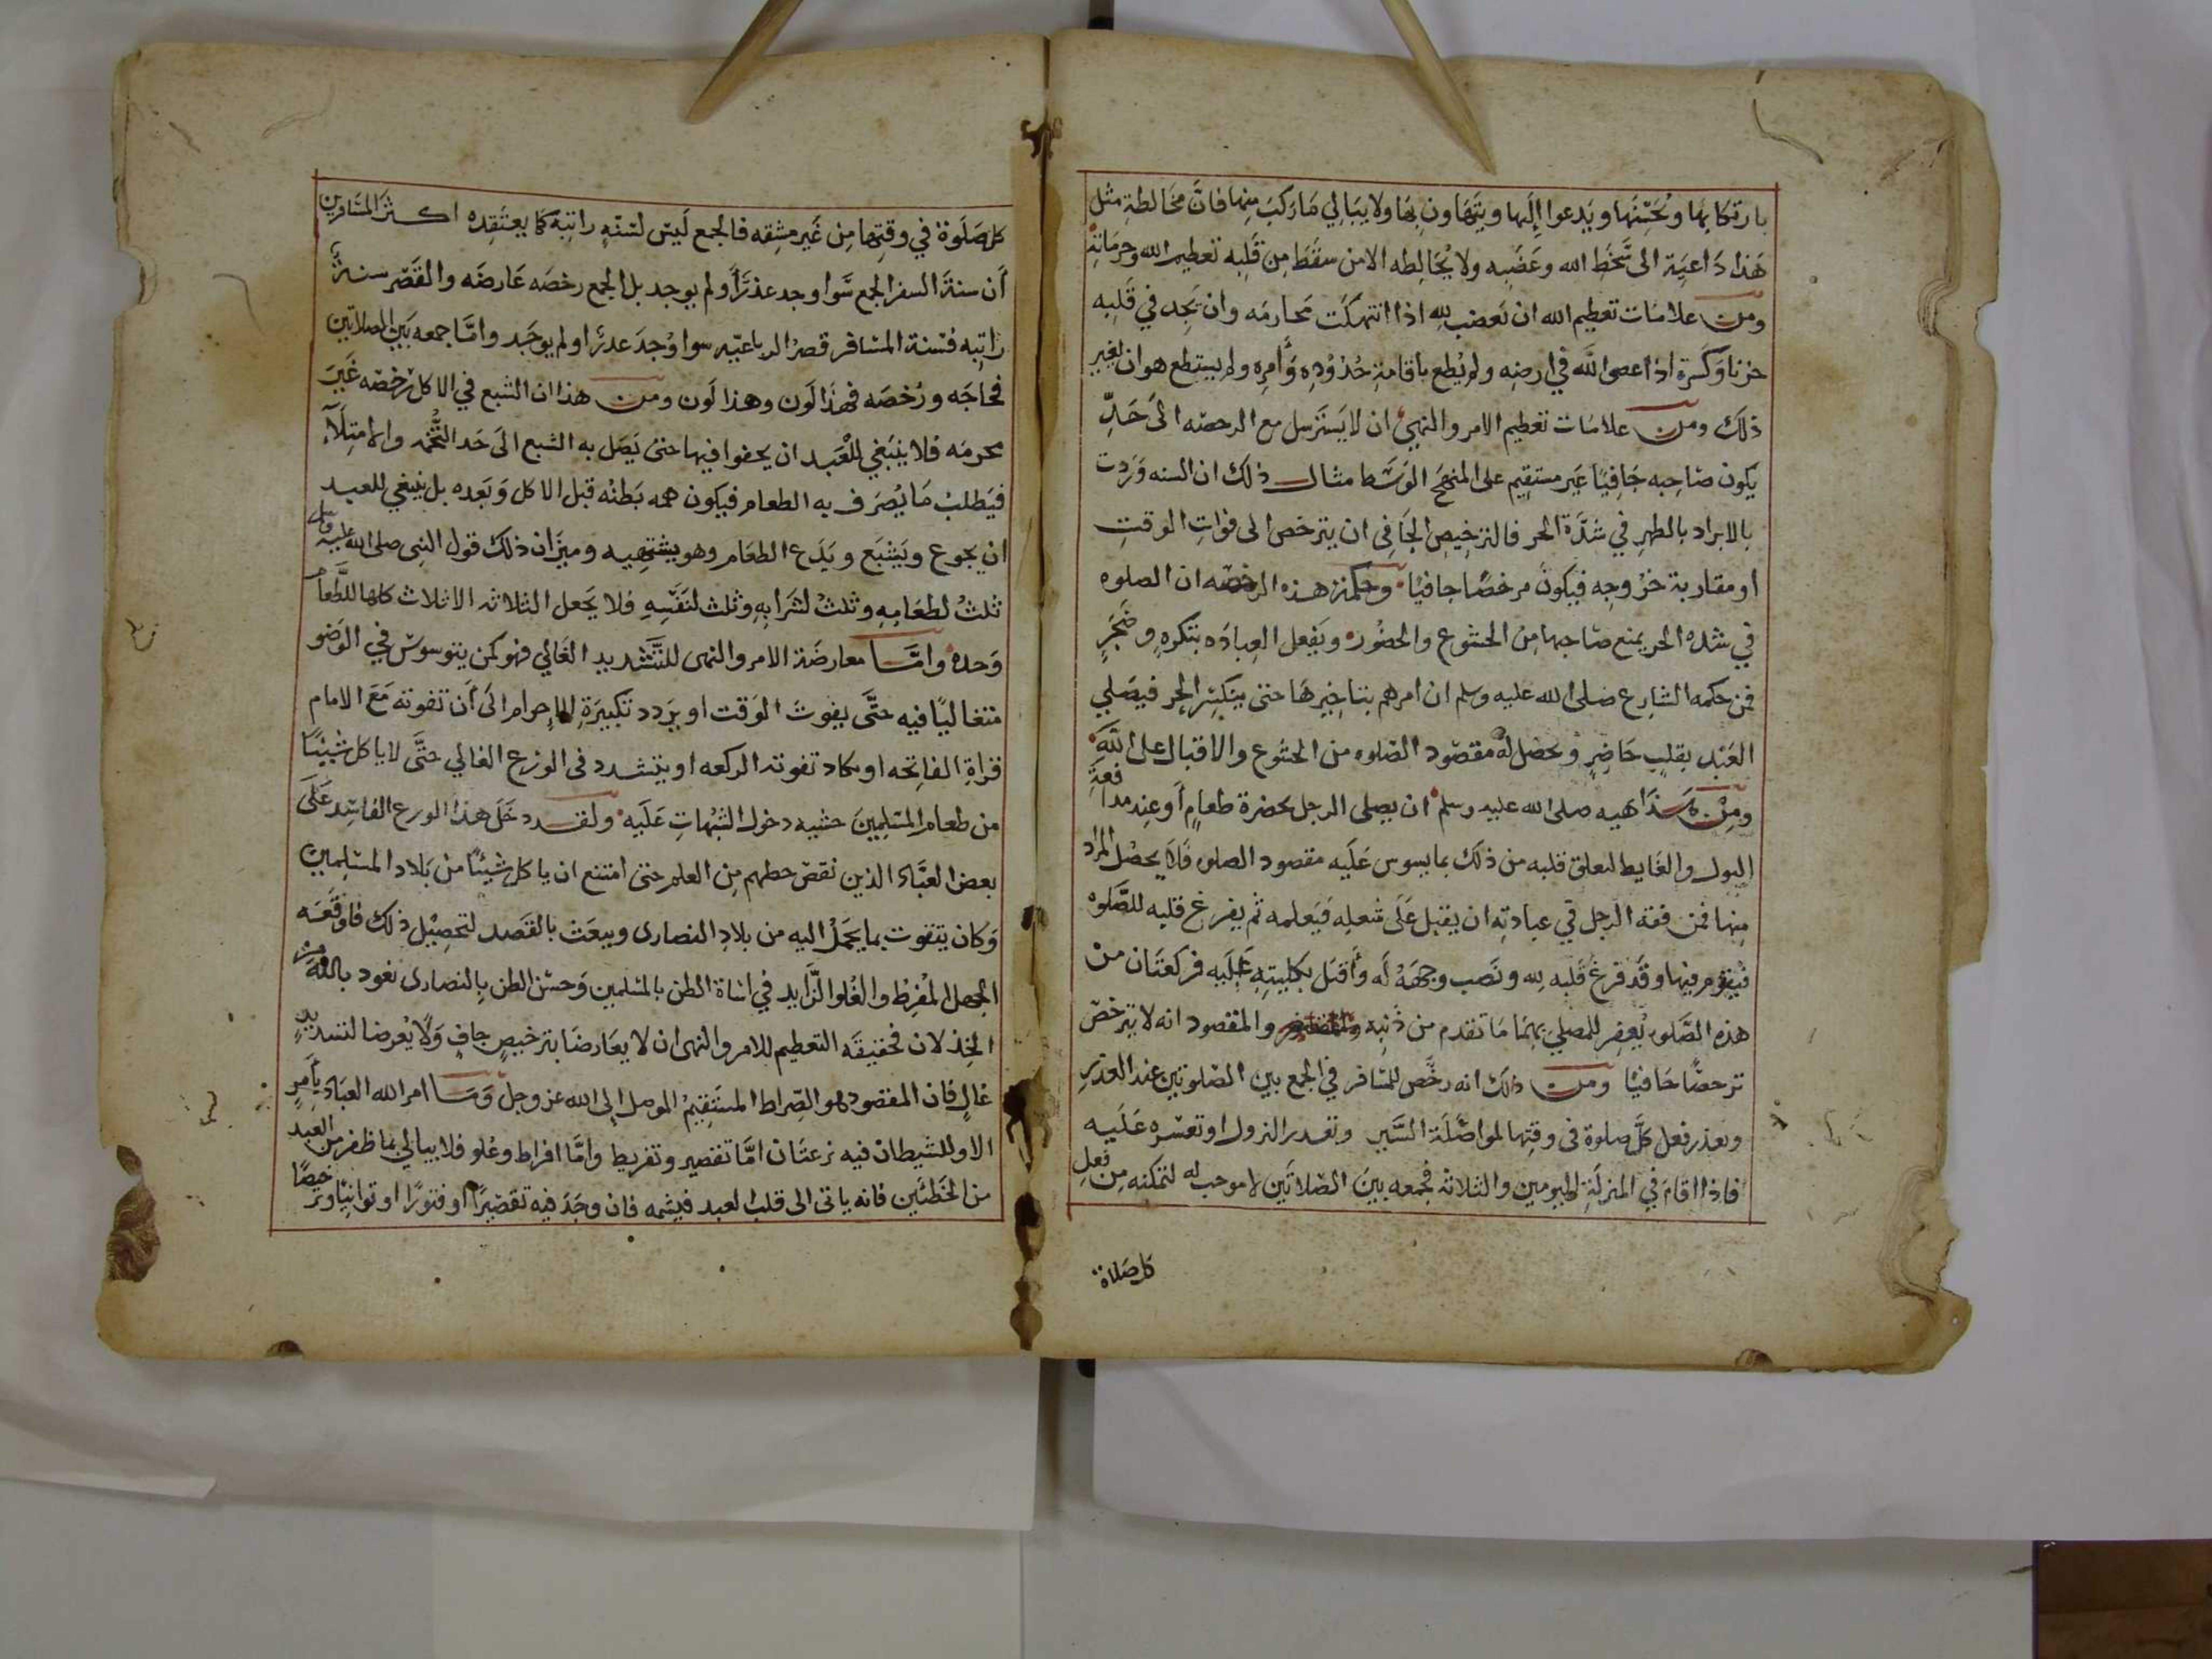 بارتكابها ويحسنها ويدعوا إليها ويتهاون بها ولا يبالي ما ركب منها فان مخالطة مثل
هذا داعية الى سخط الله وغضبه ولا يخالطه الا من سقط من قلبه تعظيم الله وحرماته
ومن علامات تعظيم الله ان تغضب لله اذا انتهكت محارمه وان تجد في قلبه
حزنا وكسرة اذا عصى الله في ارضه ولم يطع باقامة حدوده وأمره ولم يستطع هو ان يغير
ذلك ومن علامات تعظيم الامر والنهي ان لا يسترسل مع الرخصه الى حد
يكون صاحبه جافيا غير مستقيم على المنهج الوسط مثال ذلك ان السنه وردت
بالابراد بالظهر في شدة الحر فالترخيص الجافى ان يترخص الى فوات الوقت
او مقاربة خروجه فيكون مرخصا جافيا وحكمة هذه الرخصه ان الصلوه
في شده الحر يمنع صاحبها من الخشوع والحضور ويفعل العباده بتكره وضجر
فمن حكمه الشارع صلى الله عليه وسلم ان امرهم بتاخيرها حتى ينكسر الحر فيصلي
العبد بقلب حاضر ويحصل له مقصود الصلوه من الخشوع والاقبال على الله
ومن هذا نهيه صلى الله عليه وسلم ان يصلى الرجل بحضرة طعام أو عند مدافعة
البول والغايط لتعلق قلبه من ذلك بما يسوس عليه مقصود الصلوه فلا يحصل المراد
منها فمن فقه الرجل في عبادته ان يقبل على شغله فيعلمه ثم يفرغ قلبه للصلوه
فيقوم فيها وقد فرغ قلبه لله ونصب وجهه له وأقبل بكليته عليه فركعتان من
هذه الصلوه يغفر للمصلي بهما ما تقدم من ذنبه والمقصود انه لا يترخص
ترخصا جافيا ومن ذلك انه رخص للمسافر في الجمع بين الصلوتين عند العذر
وتعذر فعل كل صلوة فى وقتها لمواصلة السير وتعذر النزول او تعسره عليه
فاذا اقام في المنزلة اليومين والثلاثه فجمعه بين الصلاتين لا موجب له لتمكنه من فعل
كل صلاة
كل صلوة في وقتها من غير مشقه فالجمع ليس لسنة راتبة كما يعتقده اكثر المسافرين
أن سنة السفر الجمع سوا وجد عذرا أو لم يوجد بل الجمع رخصه عارضه والقصر سنة
راتبه فسنة المسافر قصر الرباعيه سوا وجد عذرا او لم يوجد واما جمعه بين الصلاتين
فحاجه ورخصه فهذا لون وهذا لون ومن هذا ان الشبع في الاكل رخصه غير
محرمه فلا ينبغي للعبد ان يجفوا فيها حتى يصل به الشبع الى حد التخمه والامتلاء
فيطلب ما يصرف به الطعام فيكون همه بطنه قبل الاكل وبعده بل ينبغي للعبد
ان يجوع ويشبع ويدع الطعام وهو يشتهيه وميزان ذلك قول النبى صلى الله عليه وسلم
ثلث لطعامه وثلث لشرابه وثلث لنفسه فلا يجعل الثلاثه الاثلاث كلها للطعام
وحده وامّا معارضة الامر والنهى للتشديد الغالي فهو كمن يتوسوس في الوضو
متغاليا فيه حتى يفوت الوقت او يردد تكبيرة الاحرام الى أن تفوته مع الامام
قراة الفاتحه او يكاد تفوته الركعه او يتشدد فى الورع الغالي حتى لا ياكل شيئا
من طعام المسلمين خشيه دخول الشبهات عليه ولقد دخل هذا الورع الفاسد على
بعض العباد الذين نقص حظهم من العلم حتى امتنع ان ياكل شيئا من بلاد المسلمين
وكان يتقوت بما يحمل اليه من بلاد النصارى ويبعث بالقصد لتحصيل ذلك فاوقعه
الجهل المفرط والغلو الزايد في اساة الظن بالمسلمين وحسن الظن بالنصارى نعوذ بالله من
الخذلان فحقيقه التعظيم للامر والنهى ان لا يعارضا بترخيص جاف ولا يعرضا لتشديد
غال فان المقصود هو الصراط المستقيم الموصل إلى الله عز وجل وما امر الله العباد بأمر
الا وللشيطان فيه نزعتان اما تقصير وتفريط وإما افراط وغلو فلا يبالي بما ظفر من العبد
من الخطئين فانه ياتى الى قلب العبد فيشمه فان وجد فيه تقصيرا او فتورا او توانيا وترخيصا